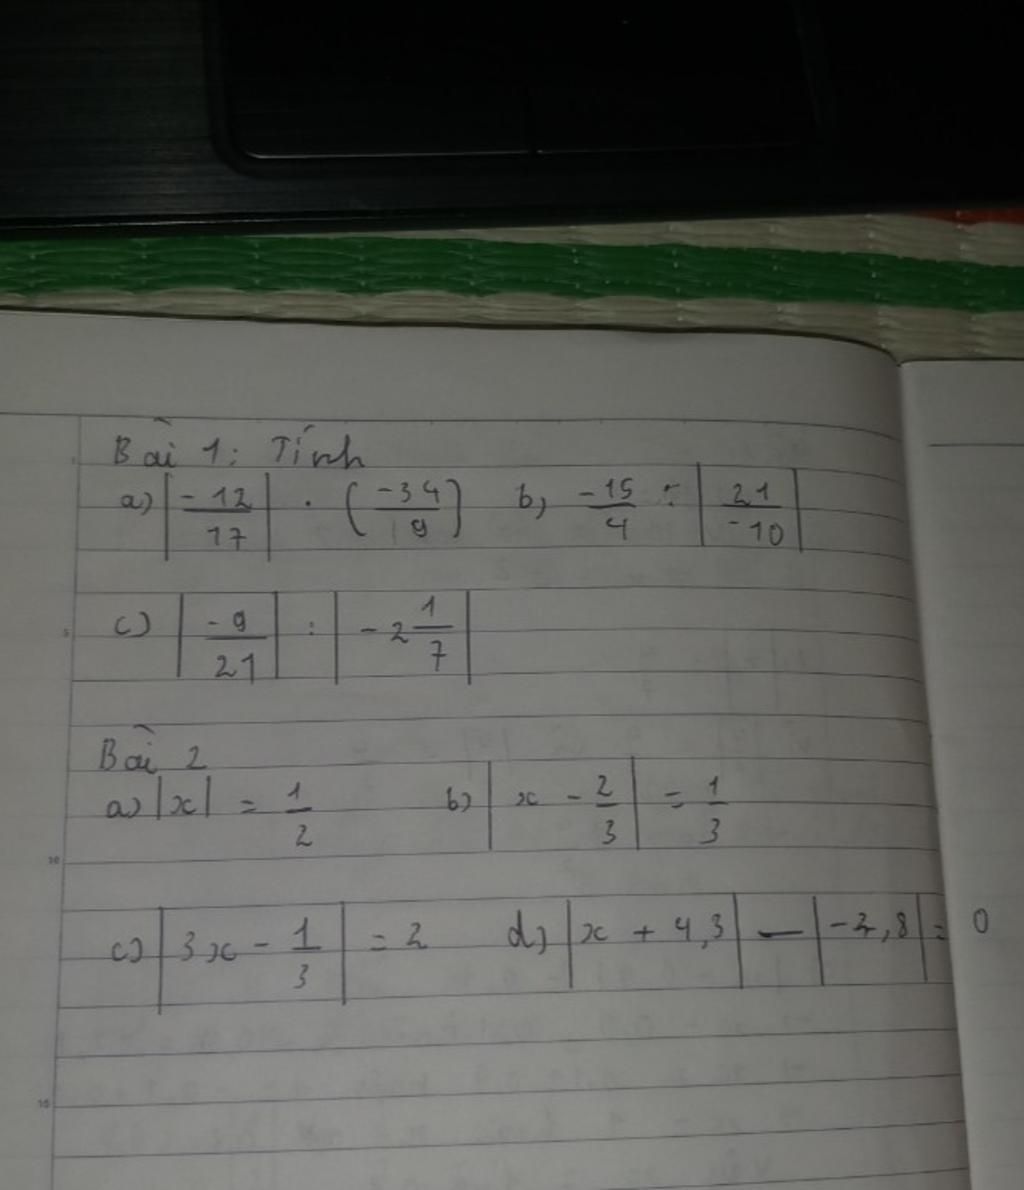 Bài 1: Tính
a) |-12/17| . (-34/9) b, -15/4 : |21/-10|
c) |-9/21| : |-2 1/7|
Bài 2
a) |x| = 1/2 b) |x - 2/3| = 1/3
c) |3x - 1/3| = 2 d) |x + 4,3| - |-2,8| = 0